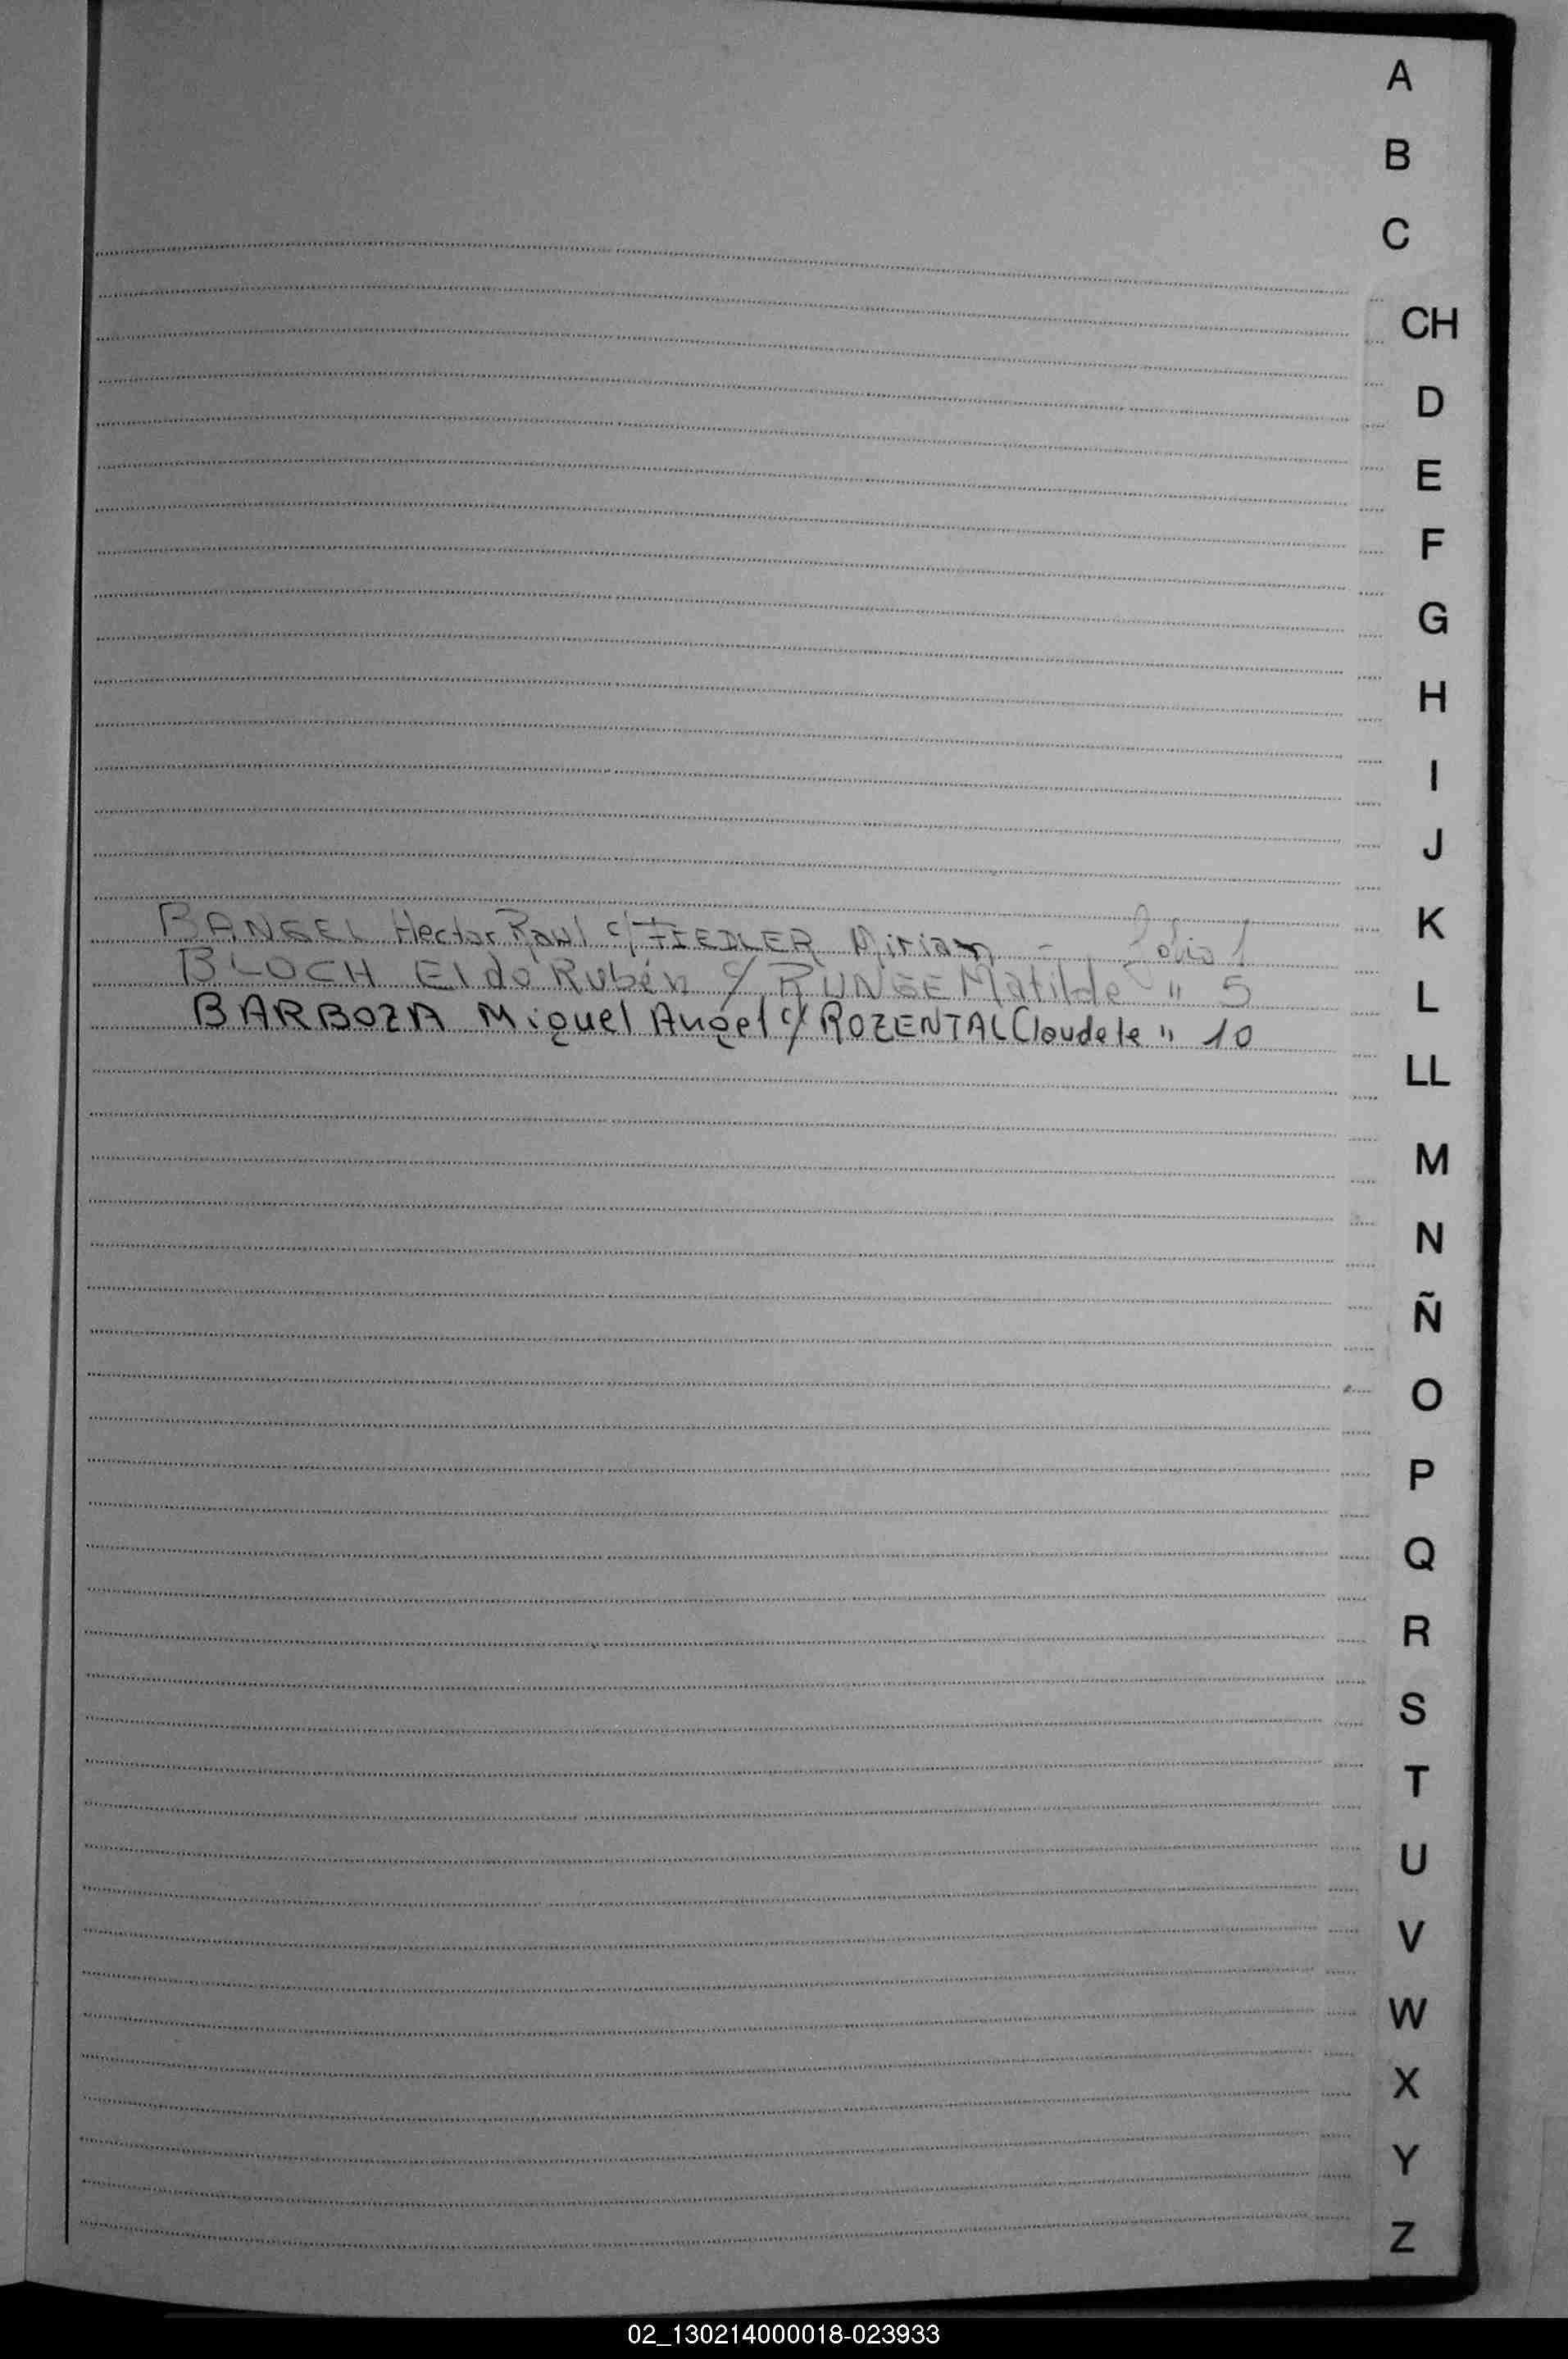 A
B
C
CH
D
E
F
G
H
I
J
K
L
LL
M
N
Ñ
O
P
Q
R
S
T
U
V
W
X
Y
Z
BANGEL Hector Raul c/ FIEDLER Miriam - Folio 1
BLOCH Eldo Rubén c/ RUNGE Matilde " 5
BARBOZA Miguel Angel c/ ROZENTAL Claudete " 10
02_130214000018-023933